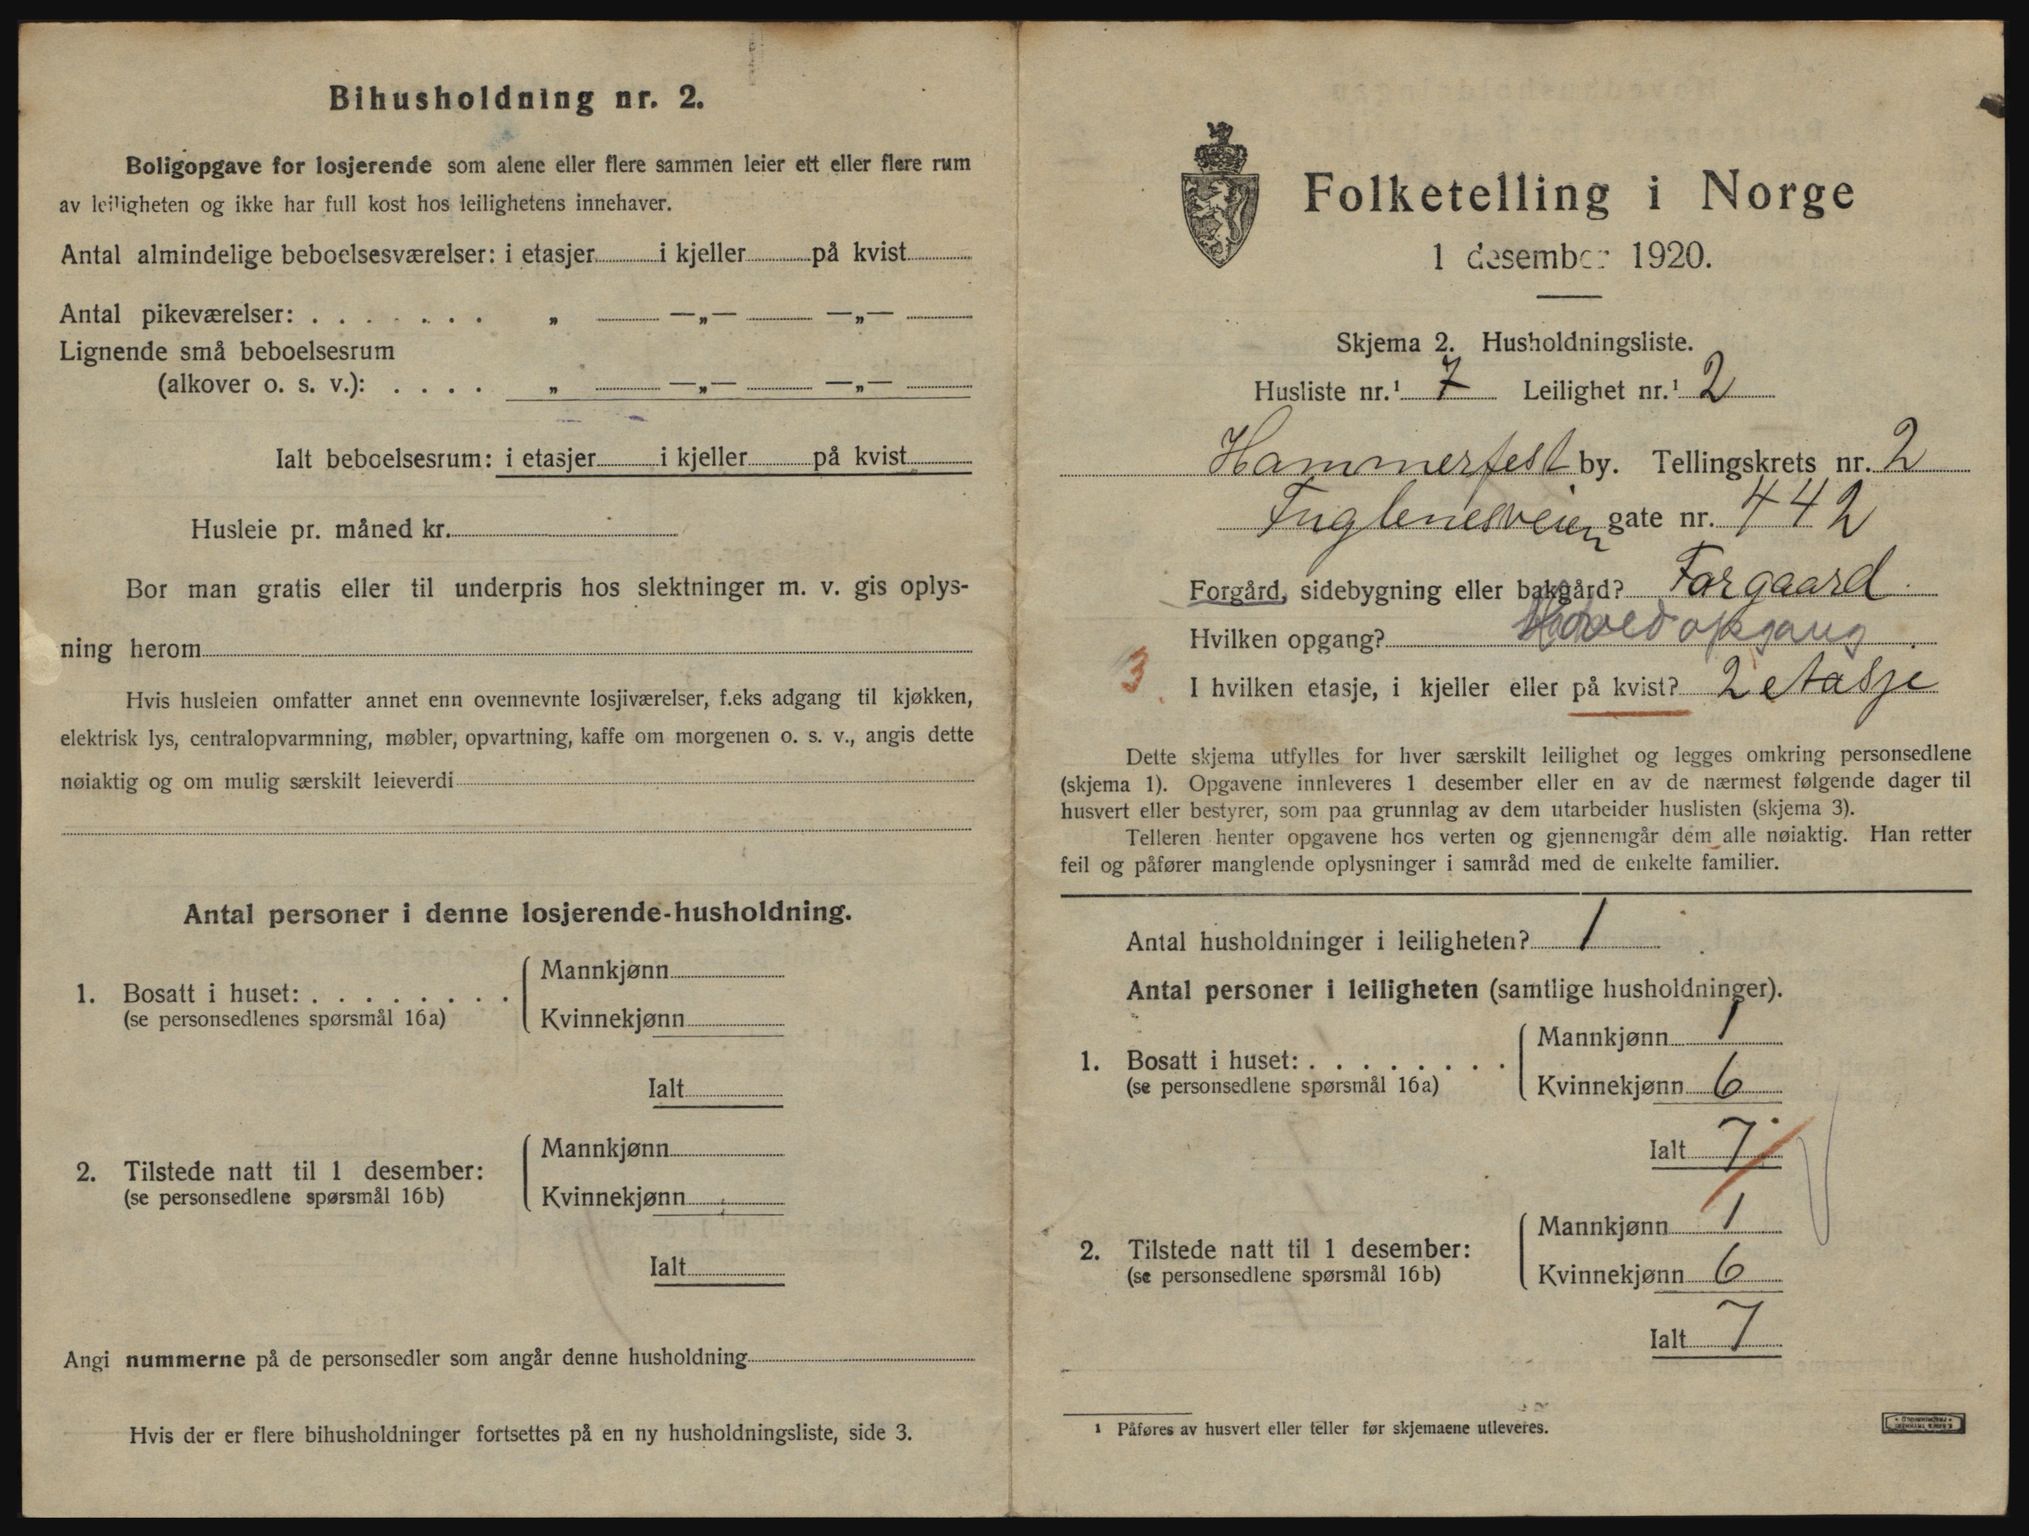 Bihusholdning nr. 2.
Boligopgave for losjerende som alene eller flere sammen leier ett eller flere rum
av leiligheten og ikke har full kost hos leilighetens innehaver.
Antal almindelige beboelsesværelser: i etasjer i kjeller på kvist
Antal pikeværelser: . . . . . . . „ —„— —„—
Lignende små beboelsesrum
(alkover o. s. v.): . . . . „ —„— —„—
Ialt beboelsesrum: i etasjer i kjeller på kvist
Husleie pr. måned kr.
Bor man gratis eller til underpris hos slektninger m. v. gis oplys-
ning herom
Hvis husleien omfatter annet enn ovennevnte losjiværelser, f.eks adgang til kjøkken,
elektrisk lys, centralopvarmning, møbler, opvartning, kaffe om morgenen o. s. v., angis dette
nøiaktig og om mulig særskilt leieverdi
Antal personer i denne losjerende-husholdning.
1. Bosatt i huset: . . . . . . . .
(se personsedlenes spørsmål 16a)
Mannkjønn
Kvinnekjønn
Ialt
2. Tilstede natt til 1 desember:
(se personsedlene spørsmål 16b)
Mannkjønn
Kvinnekjønn
Ialt
Angi nummerne på de personsedler som angår denne husholdning
Hvis der er flere bihusholdninger fortsettes på en ny husholdningsliste, side 3.
Folketelling i Norge
1 desember 1920.
Skjema 2. Husholdningsliste.
Husliste nr.¹ 7 Leilighet nr.¹ 2
Hammerfest by. Tellingskrets nr. 2
Fuglenesveien gate nr. 442
Forgård, sidebygning eller bakgård? Forgaard
Hvilken opgang? Hovedopgang
3. I hvilken etasje, i kjeller eller på kvist? 2 etasje
Dette skjema utfylles for hver særskilt leilighet og legges omkring personsedlene
(skjema 1). Opgavene innleveres 1 desember eller en av de nærmest følgende dager til
husvert eller bestyrer, som paa grunnlag av dem utarbeider huslisten (skjema 3).
Telleren henter opgavene hos verten og gjennemgår dem alle nøiaktig. Han retter
feil og påfører manglende oplysninger i samråd med de enkelte familier.
Antal husholdninger i leiligheten? 1
Antal personer i leiligheten (samtlige husholdninger).
1. Bosatt i huset: . . . . . . . .
(se personsedlene spørsmål 16a)
Mannkjønn 1
Kvinnekjønn 6
Ialt 7
2. Tilstede natt til 1 desember:
(se personsedlene spørsmål 16b)
Mannkjønn 1
Kvinnekjønn 6
Ialt 7
¹ Påføres av husvert eller teller før skjemaene utleveres.